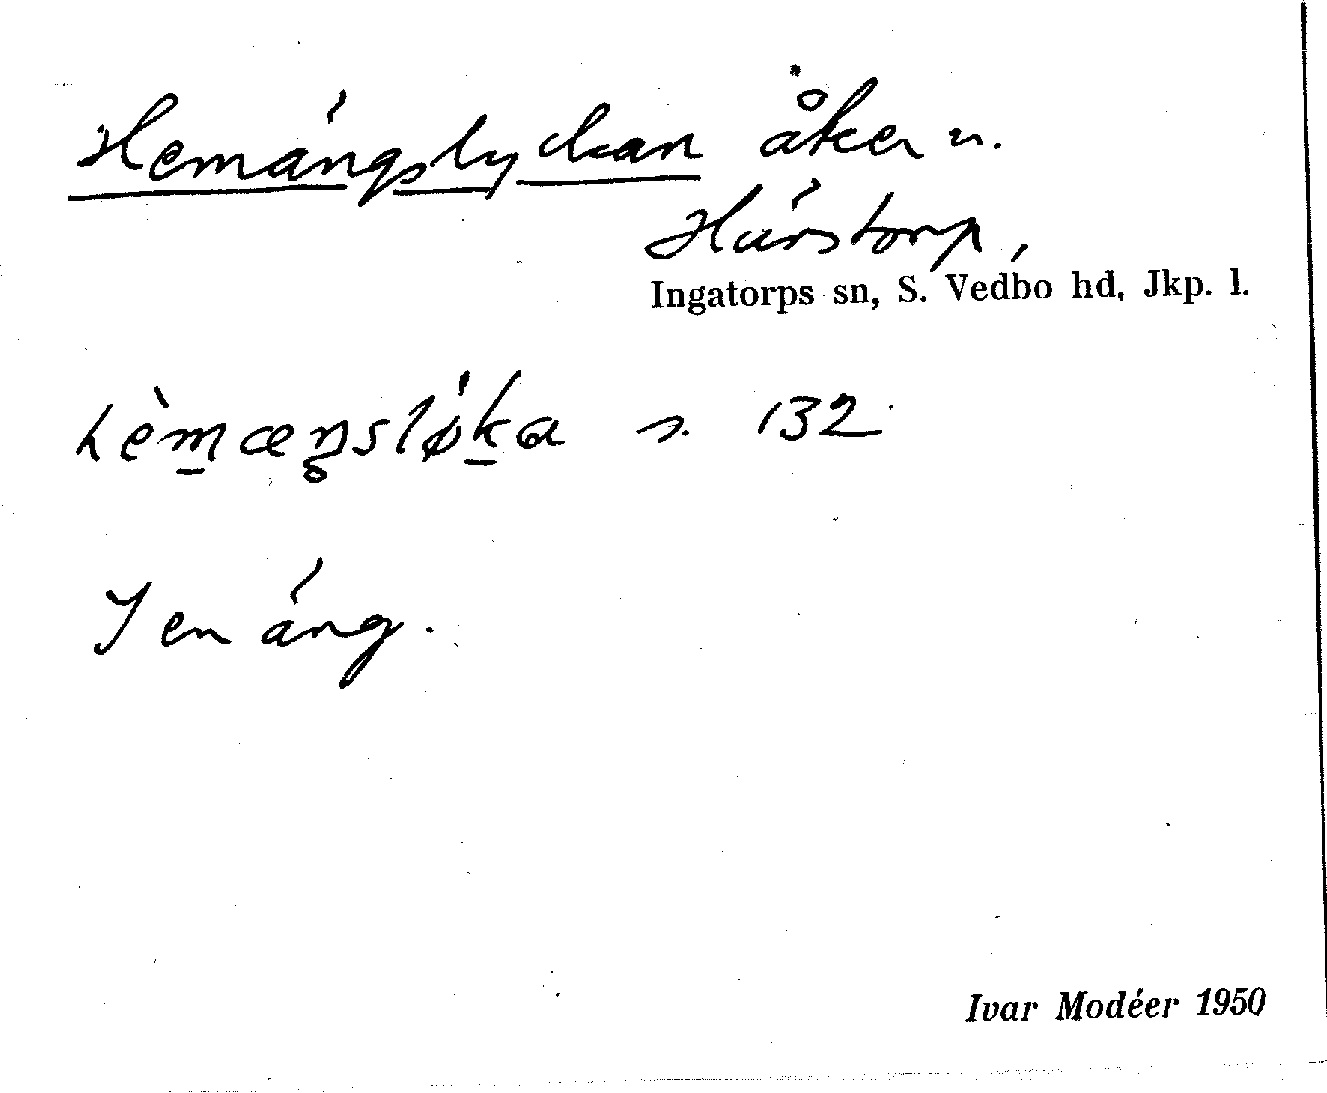 Hemängslyckan åker n.
Härstorp,
Ingatorps sn, S. Vedbo hd, Jkp. l.
hèm̱æŋ̥sløḵa s. 132
I en äng.
Ivar Modéer 1950